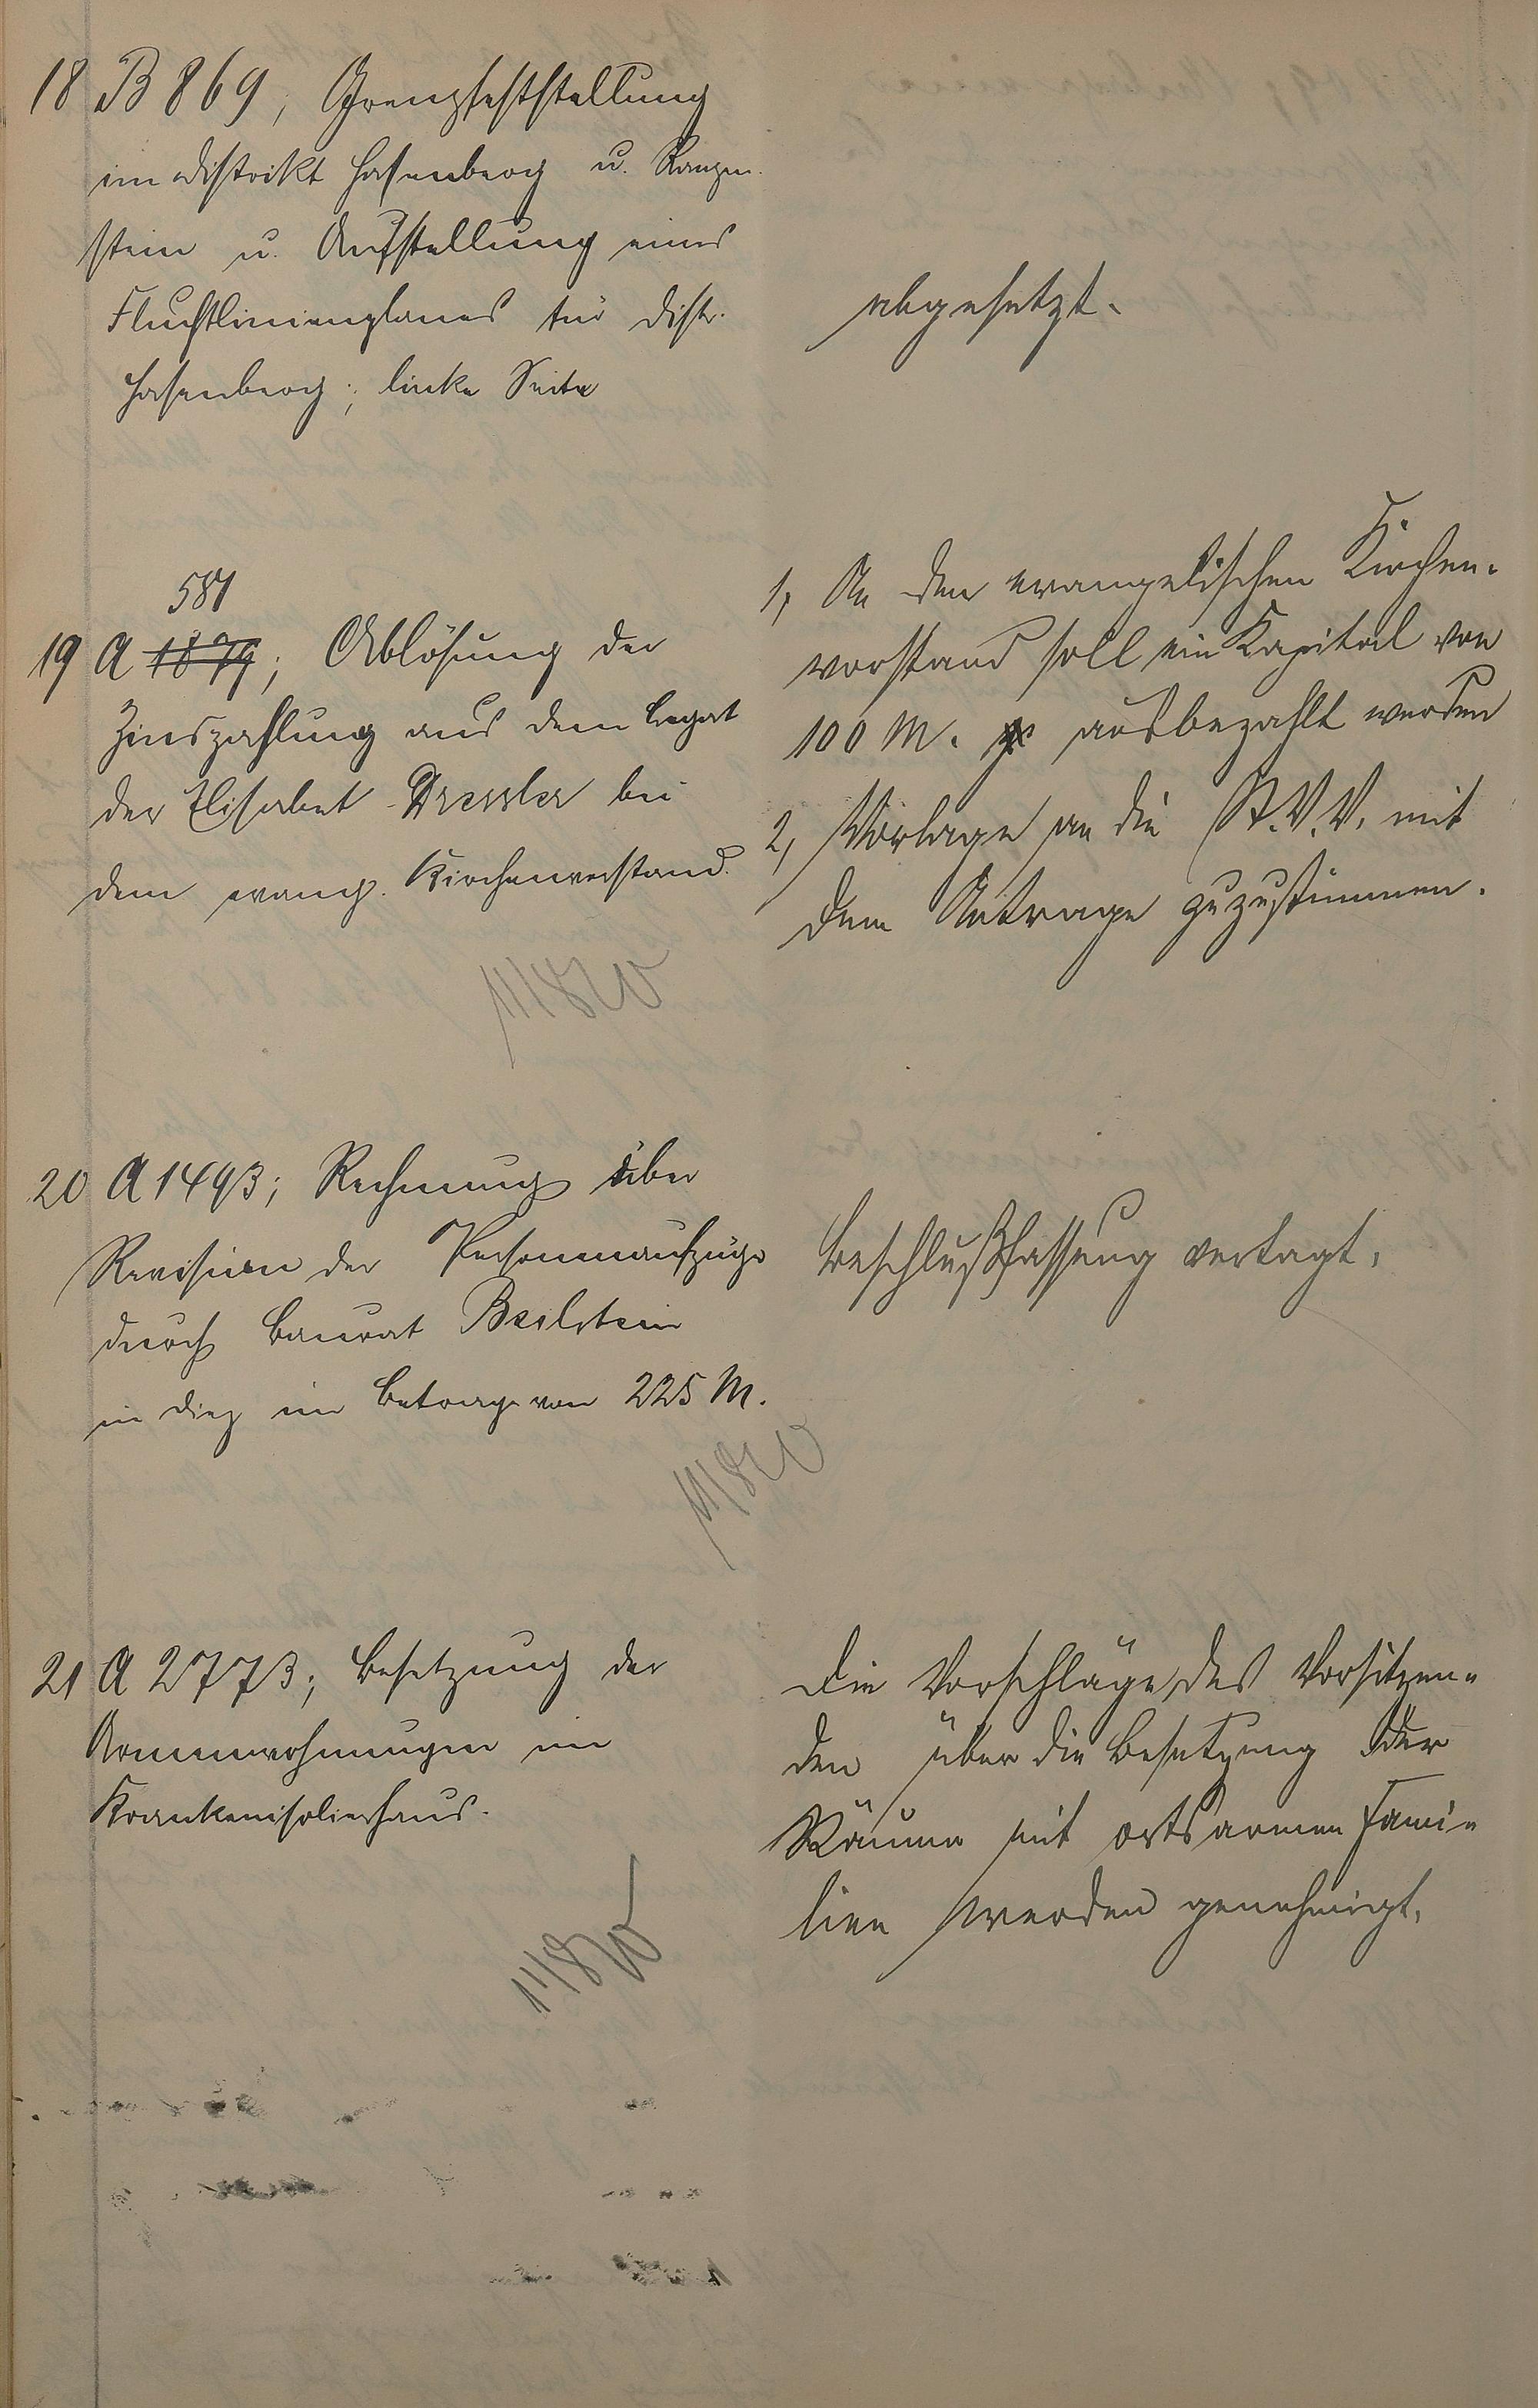 18 B 869, Grenzfeststellung
im Distrikt Hasenberg u. Ranzen-
stein u. Aufstellung eines
Fluchtlinienplanes für Distr.
Hasenberg; linke Seite
abgesetzt.
581
19 A 1879; Ablösung der
Zinszahlung aus dem Legat
der Elisabet Dressler bei
dem evang. Kirchenvorstand.
1, An den evangelischen Kirchen-
vorstand soll ein Kapital von
100 M. ausbezahlt werden
2, Vorlage an die St.V.V. mit
dem Antrage zuzustimmen.
20 A 1493; Rechnung über
Revision der Personenaufzüge
durch Baurat Beilstein
in Diez im Betrage von 225 M.
Beschlußfassung vertagt.
21 A 2773; Besetzung der
Armenwohnungen im
Krankenisolierhaus.
Die Vorschläge des Vorsitzen-
den über die Besetzung der
Räume mit ortsarmen Fami-
lien werden genehmigt.